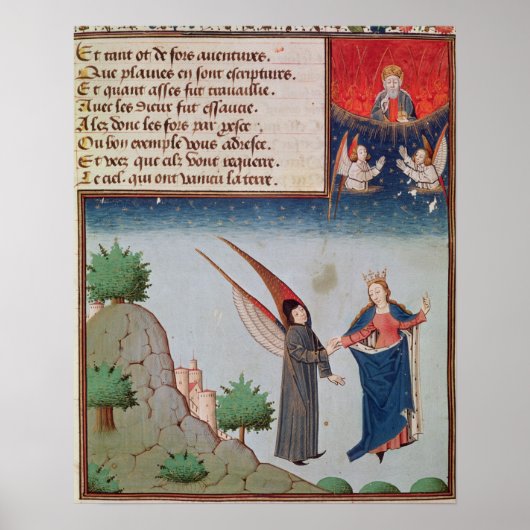 Et tant ot de fors auentures.
Que plaines en sont escriptures.
Et quant asses fut trauaillie.
Auec les dieux fut essaucie.
Alez donc les fors par
Ou bon exemple vous adresce.
Et veez que cilz vont requerre.
Le ciel. qui ont vaincu la terre.